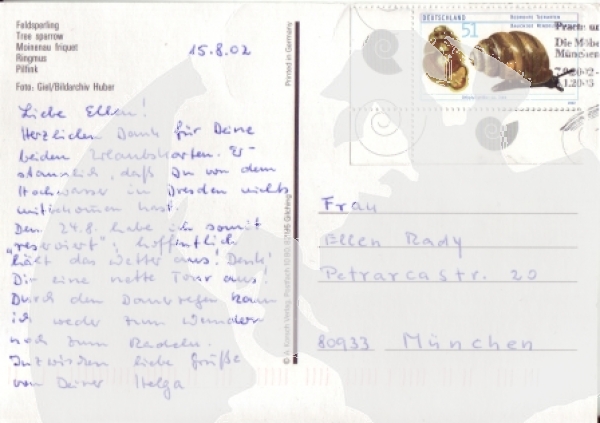 Feldsperling
Tree sparrow
Moineau friquet
Ringmus
Pilfink
Foto: Giel/Bildarchiv Huber
15.8.02
Liebe Ellen!
Herzlichen Dank für Deine
beiden Urlaubskarten. Er-
staunlich, daß Du von dem
Hochwasser in Dresden nichts
mitbekommen hast.
Den 24.8. habe ich somit
"reserviert"; hoffentlich
hält das Wetter aus! Denk'
Dir eine nette Tour aus!
Durch den Dauerregen kann
ich weder zum Wandern
noch zum Radeln.
Inzwischen liebe Grüße
von Deiner Helga
Printed in Germany
Verlag, Postfach 1080, 82195 Gilching
DEUTSCHLAND
51
Die Möbe
München
Frau
Ellen Rady
Petrarcastr. 20
80933 München